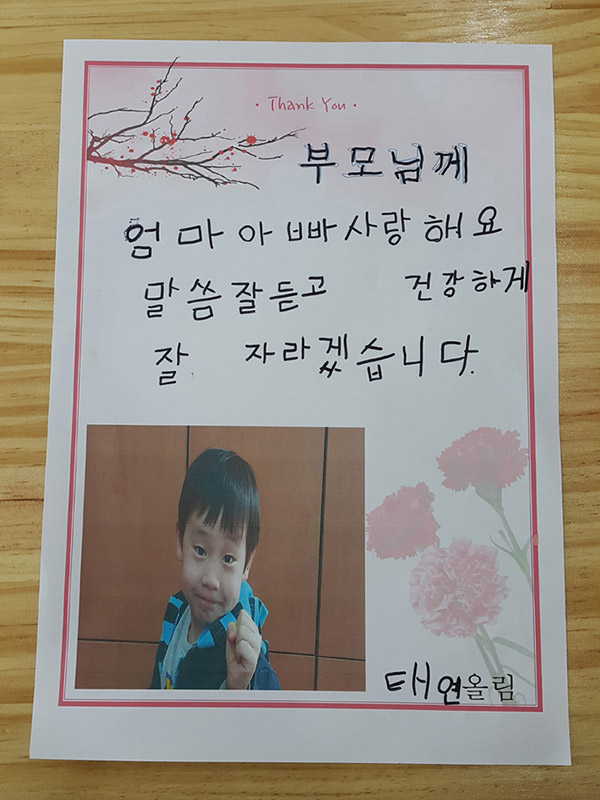 · Thank You ·
부모님께
엄마아빠사랑해요
말씀잘듣고 건강하게
잘 자라겠습니다.
태연올림